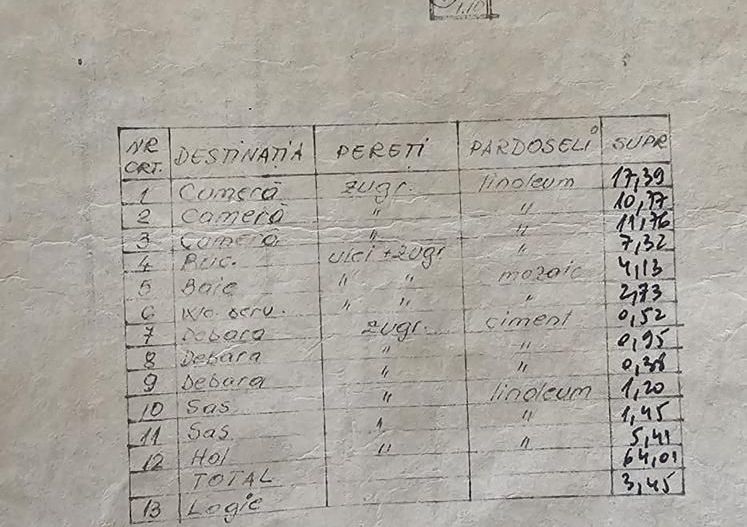 1.10
NR CRT. DESTINAȚIA PEREȚI PARDOSELI SUPR
1 Cameră zugr. linoleum 17,39
2 Cameră " " 10,77
3 Cameră " " 11,76
4 Buc. ulei + zugr " 7,32
5 Baie " " mozaic 4,13
6 W.c. serv. " " " 2,73
7 Debara zugr. ciment 0,52
8 Debara " " 0,95
9 Debara " " 0,38
10 Sas " linoleum 1,20
11 Sas " " 1,45
12 Hol " " 5,41
TOTAL 64,01
13 Logie 3,45